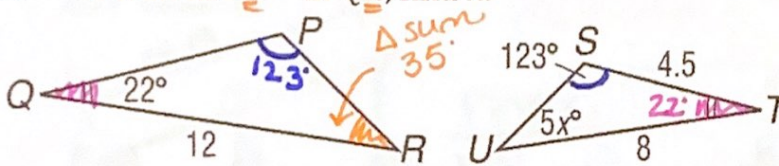 P
Δ sum
35°
123°
Q
22°
12
R
S
123°
4.5
22°
T
5x°
U
8